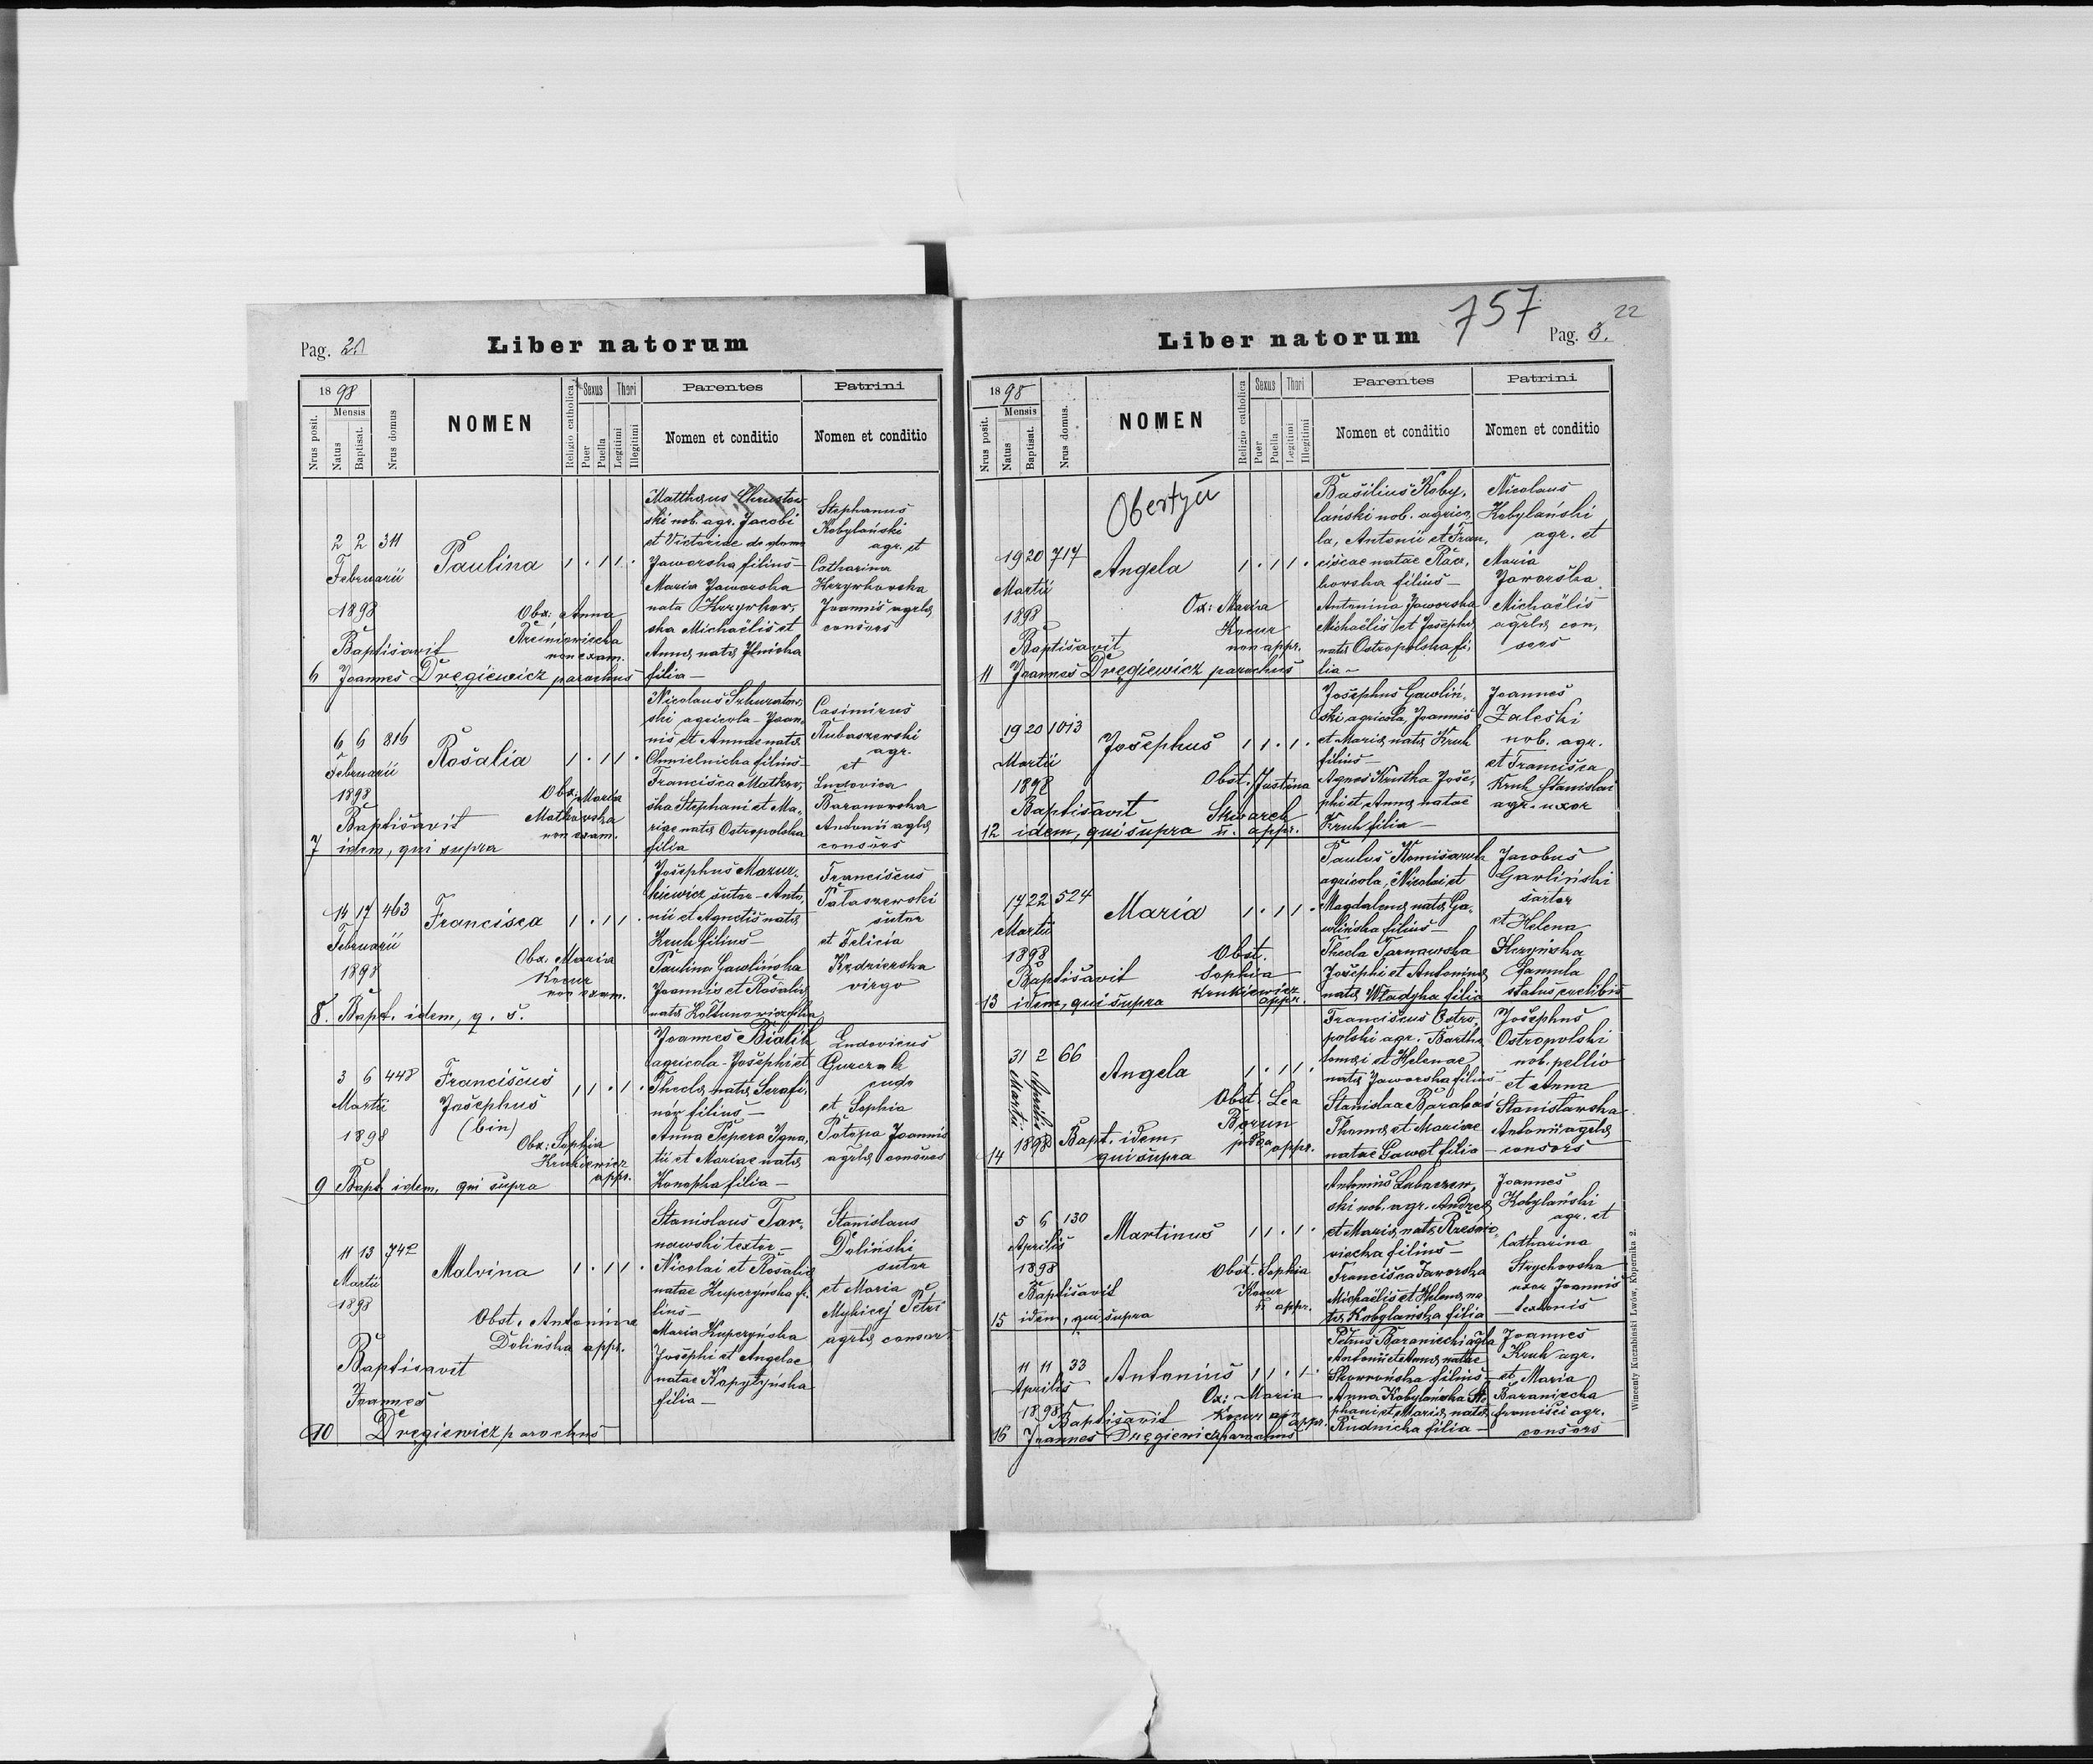 Pag. 2.
Liber natorum
1898
Nrus posit.
Mensis
Natus
Baptisat.
Nrus domus
NOMEN
Religio catholica
Sexus
Puer
Puella
Thori
Legitimi
Illegitimi
Parentes
Nomen et conditio
Patrini
Nomen et conditio
2 2 311
Februarii
1898
Paulina
1 . 1 1 .
Obx: Anna
non exam.
Baptisavit
6 Joannes Dręgiewicz parochus
Matthæus
ski nob. agr. Jacobi
et Victoriae de domo
Jaworska filius -
Maria Jaworska
nata Krzyrkow,
ska Michaëlis et
Annæ natæ Ilnicka
filia -
Stephanus
Kobylański
agr. et
Catharina
Krzyrkowska
Joannis agrlæ
consors
6 6 816
Februarii
1898
Rosalia
1 . 1 1 .
Obx: Maria
Matkowska
non exam.
Baptisavit
7 idem, qui supra
Nicolaus
ski agricola - Joan,
nis et Annae natæ
Chmielnicka filius -
Francisca Matkow,
ska Stephani et Ma,
riae natæ Ostropolska
filia
Casimirus
Rubaszewski
agr.
et
Ludovica
Baranowska
Antonii aglæ
consors
14 17 463
Februarii
1898
Francisca
1 . 1 1 .
Obx: Maria
Kocur
non exam.
8. Bapt. idem, q. s.
Josephus Mazur,
kiewicz sutor - Anto,
nii et Agnetis natæ
Kruk filius -
Paulina Gawlińska
Joannis et Rosaliæ
natæ
Franciscus
Pataszewski
sutor
et Felicia
Kędzierska
virgo
3 6 448
Martii
1898
Franciscus
Josephus
(bin)
1 1 . 1 .
Obx: Sophia
Krukiewicz
appr.
9 Bapt. idem, qui supra
Joannes Bialik
agricola - Josephi et
Theclæ natæ Serafi,
nów filius -
Anna Pepera Igna,
tii et Mariae natæ
Konopka filia -
Ludovicus
Gurczak
cudo
et Sophia
Potępa Joannis
agrlæ consors
11 13 742
Martii
1898
Malvina
1 . 1 1 .
Obst. Antonina
Dolińska appr.
Baptisavit
Joannes
10 Dręgiewicz parochus
Stanislaus Tar,
nawski textor -
Nicolai et Rosaliæ
natae Kupczyńska fi,
lius -
Maria Kupczyńska
Josephi et Angelae
natae Kopytyńska
filia -
Stanislaus
Doliński
sutor
et Maria
Mykicej Petri
agrlæ consors
757
22
Liber natorum
Pag. 3.
1898
Nrus posit.
Mensis
Natus
Baptisat.
Nrus domus.
NOMEN
Religio catholica
Sexus
Puer
Puella
Thori
Legitimi
Illegitimi
Parentes
Nomen et conditio
Patrini
Nomen et conditio
Obertyn
19 20 717
Martii
1898
Angela
1 . 1 1 .
Ox: Maria
Kocur
non appr.
Baptisavit
11 Joannes Dręgiewicz parochus
Basilius Koby,
lański nob. agrico,
la, Antonii et Fran,
ciscae natae Racz,
kowska filius -
Antonina Jaworska
Michaëlis et Josephæ
natæ Ostropolska fi,
lia -
Nicolaus
Kobylański
agr. et
Maria
Jaworska
Michaëlis
agrlæ con,
sors
19 20 1013
Martii
1898
Josephus
1 1 . 1 .
Obst. Justina
Skwarek
n. appr.
Baptisavit
12 idem, qui supra
Josephus Gawliń,
ski agricola, Joannis
et Mariæ natæ Kruk
filius -
Agnes Krutka Jose,
phi et Annæ natae
Kruk filia -
Joannes
Zaleski
nob. agr.
et Francisca
Kruk Stanislai
agr. uxor
17 22 524
Martii
1898
Maria
1 . 1 1 .
Obst.
Sophia
Krukiewicz
appr.
Baptisavit
13 idem, qui supra
Paulus Komisaruk
agricola, Nicolai et
Magdalenæ natæ Ga,
wlińska filius -
Thecla Tarnawska
Josephi et Antoninæ
natæ Władyka filia
Jacobus
Garliński
sartor
et Helena
famula
status coelibis
31 2 66
Martii
Aprilis
1898
Angela
1 . 1 1 .
Obst. Lea
Borun
appr.
Bapt. idem,
14 qui supra
Franciscus Ostro,
polski agr. Bartho,
lomæi et Helenae
natæ Jaworska filius -
Stanislaa Barabas
Thomæ et Mariae
natae Gawet filia -
Josephus
Ostropolski
nob. pellio
et Anna
Stanisławska
Antonii agrlæ
consors
5 6 130
Aprilis
1898
Martinus
1 1 . 1 .
Obst. Sophia
Kocur
n appr.
Baptisavit
15 idem, qui supra
Antonius Lubaczew,
ski nob. agr. Andreæ
et Mariæ natæ Rześnio,
wiecka filius -
Francisca Jaworska
Michaëlis et Helenæ na
tæ Kobylańska filia
Joannes
Kobylański
agr. et
Catharina
Strychowska
uxor Joannis
textonis
11 11 33
Aprilis
1898
Antonius
1 1 . 1 .
Ox: Maria
Kocur appr.
Baptisavit
16 Joannes Dręgiewicz parochus
Petrus Baraniecki agla
Antonii et Annæ natae
Skowrońska filius -
Anna Kobylańska Ste
phani et Mariæ natæ
Rudnicka filia -
Joannes
Kruk agr.
et Maria
Baraniecka
Francisci agr.
consors
Wincenty Kuczabiński Lwów, Kopernika 2.